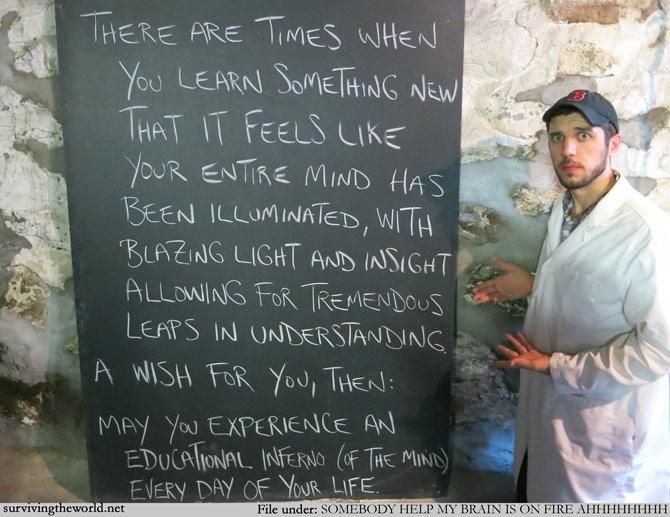 THERE ARE TIMES WHEN
YOU LEARN SOMETHING NEW
THAT IT FEELS LIKE
YOUR ENTIRE MIND HAS
BEEN ILLUMINATED, WITH
BLAZING LIGHT AND INSIGHT
ALLOWING FOR TREMENDOUS
LEAPS IN UNDERSTANDING.
A WISH FOR YOU, THEN:
MAY YOU EXPERIENCE AN
EDUCATIONAL INFERNO (OF THE MIND)
EVERY DAY OF YOUR LIFE.
B
survivingtheworld.net
File under: SOMEBODY HELP MY BRAIN IS ON FIRE AHHHHHHHH